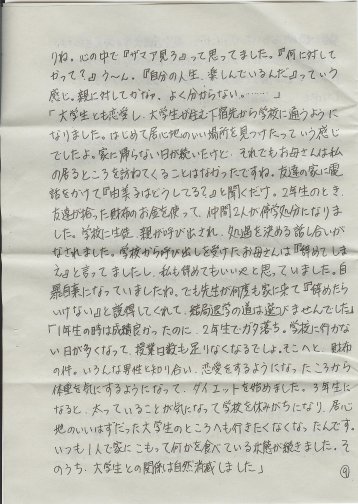 りね。心の中で『ザマア見ろ』って思ってました。『何に対して
かって？』う〜ん。『自分の人生、楽しんでいるんだ』っていう
感じ。親に対してかなァ、よく分からない。……」
「大学生とも恋愛し、大学生が住む下宿先から学校に通うように
なりました。はじめて居心地のいい場所を見つけたっていう感じ
でしたよ。家に帰らない日が続いたけど、それでもお母さんは私
の居るところを訪ねてくることはなかったですね。友達の家に電
話をかけて『由美子はどうしてる？』と聞くだけ。2年生のとき、
友達が拾った財布のお金を使って、仲間2人が停学処分になりま
した。学校に生徒、親が呼び出され、処遇を決める話し合いが
なされました。学校から呼び出しを受けたお母さんは『辞めてしま
え』と言ってましたし、私も辞めてもいいやと思っていました。自
暴自棄になっていましたね。でも先生が何度も家に来て『辞めたら
いけない』と説得してくれて、結局退学の道は選びませんでした」
「1年生の時は成績良かったのに、2年生でガタ落ち。学校に行かな
い日が多くなって、授業日数も足りなくなるでしょ。そこへと、財布
の件。いろんな男性と知り合い、恋愛をするようになったころから
体重を気にするようになって、ダイエットを始めました。3年生に
なると、太っていることが気になって学校を休みがちになり、居心
地のいいはずだった大学生のところへも行きたくなくなったんです。
いつも1人で家にこもって何かを食べている状態が続きました。そ
のうち、大学生との関係は自然消滅しました」
⑨